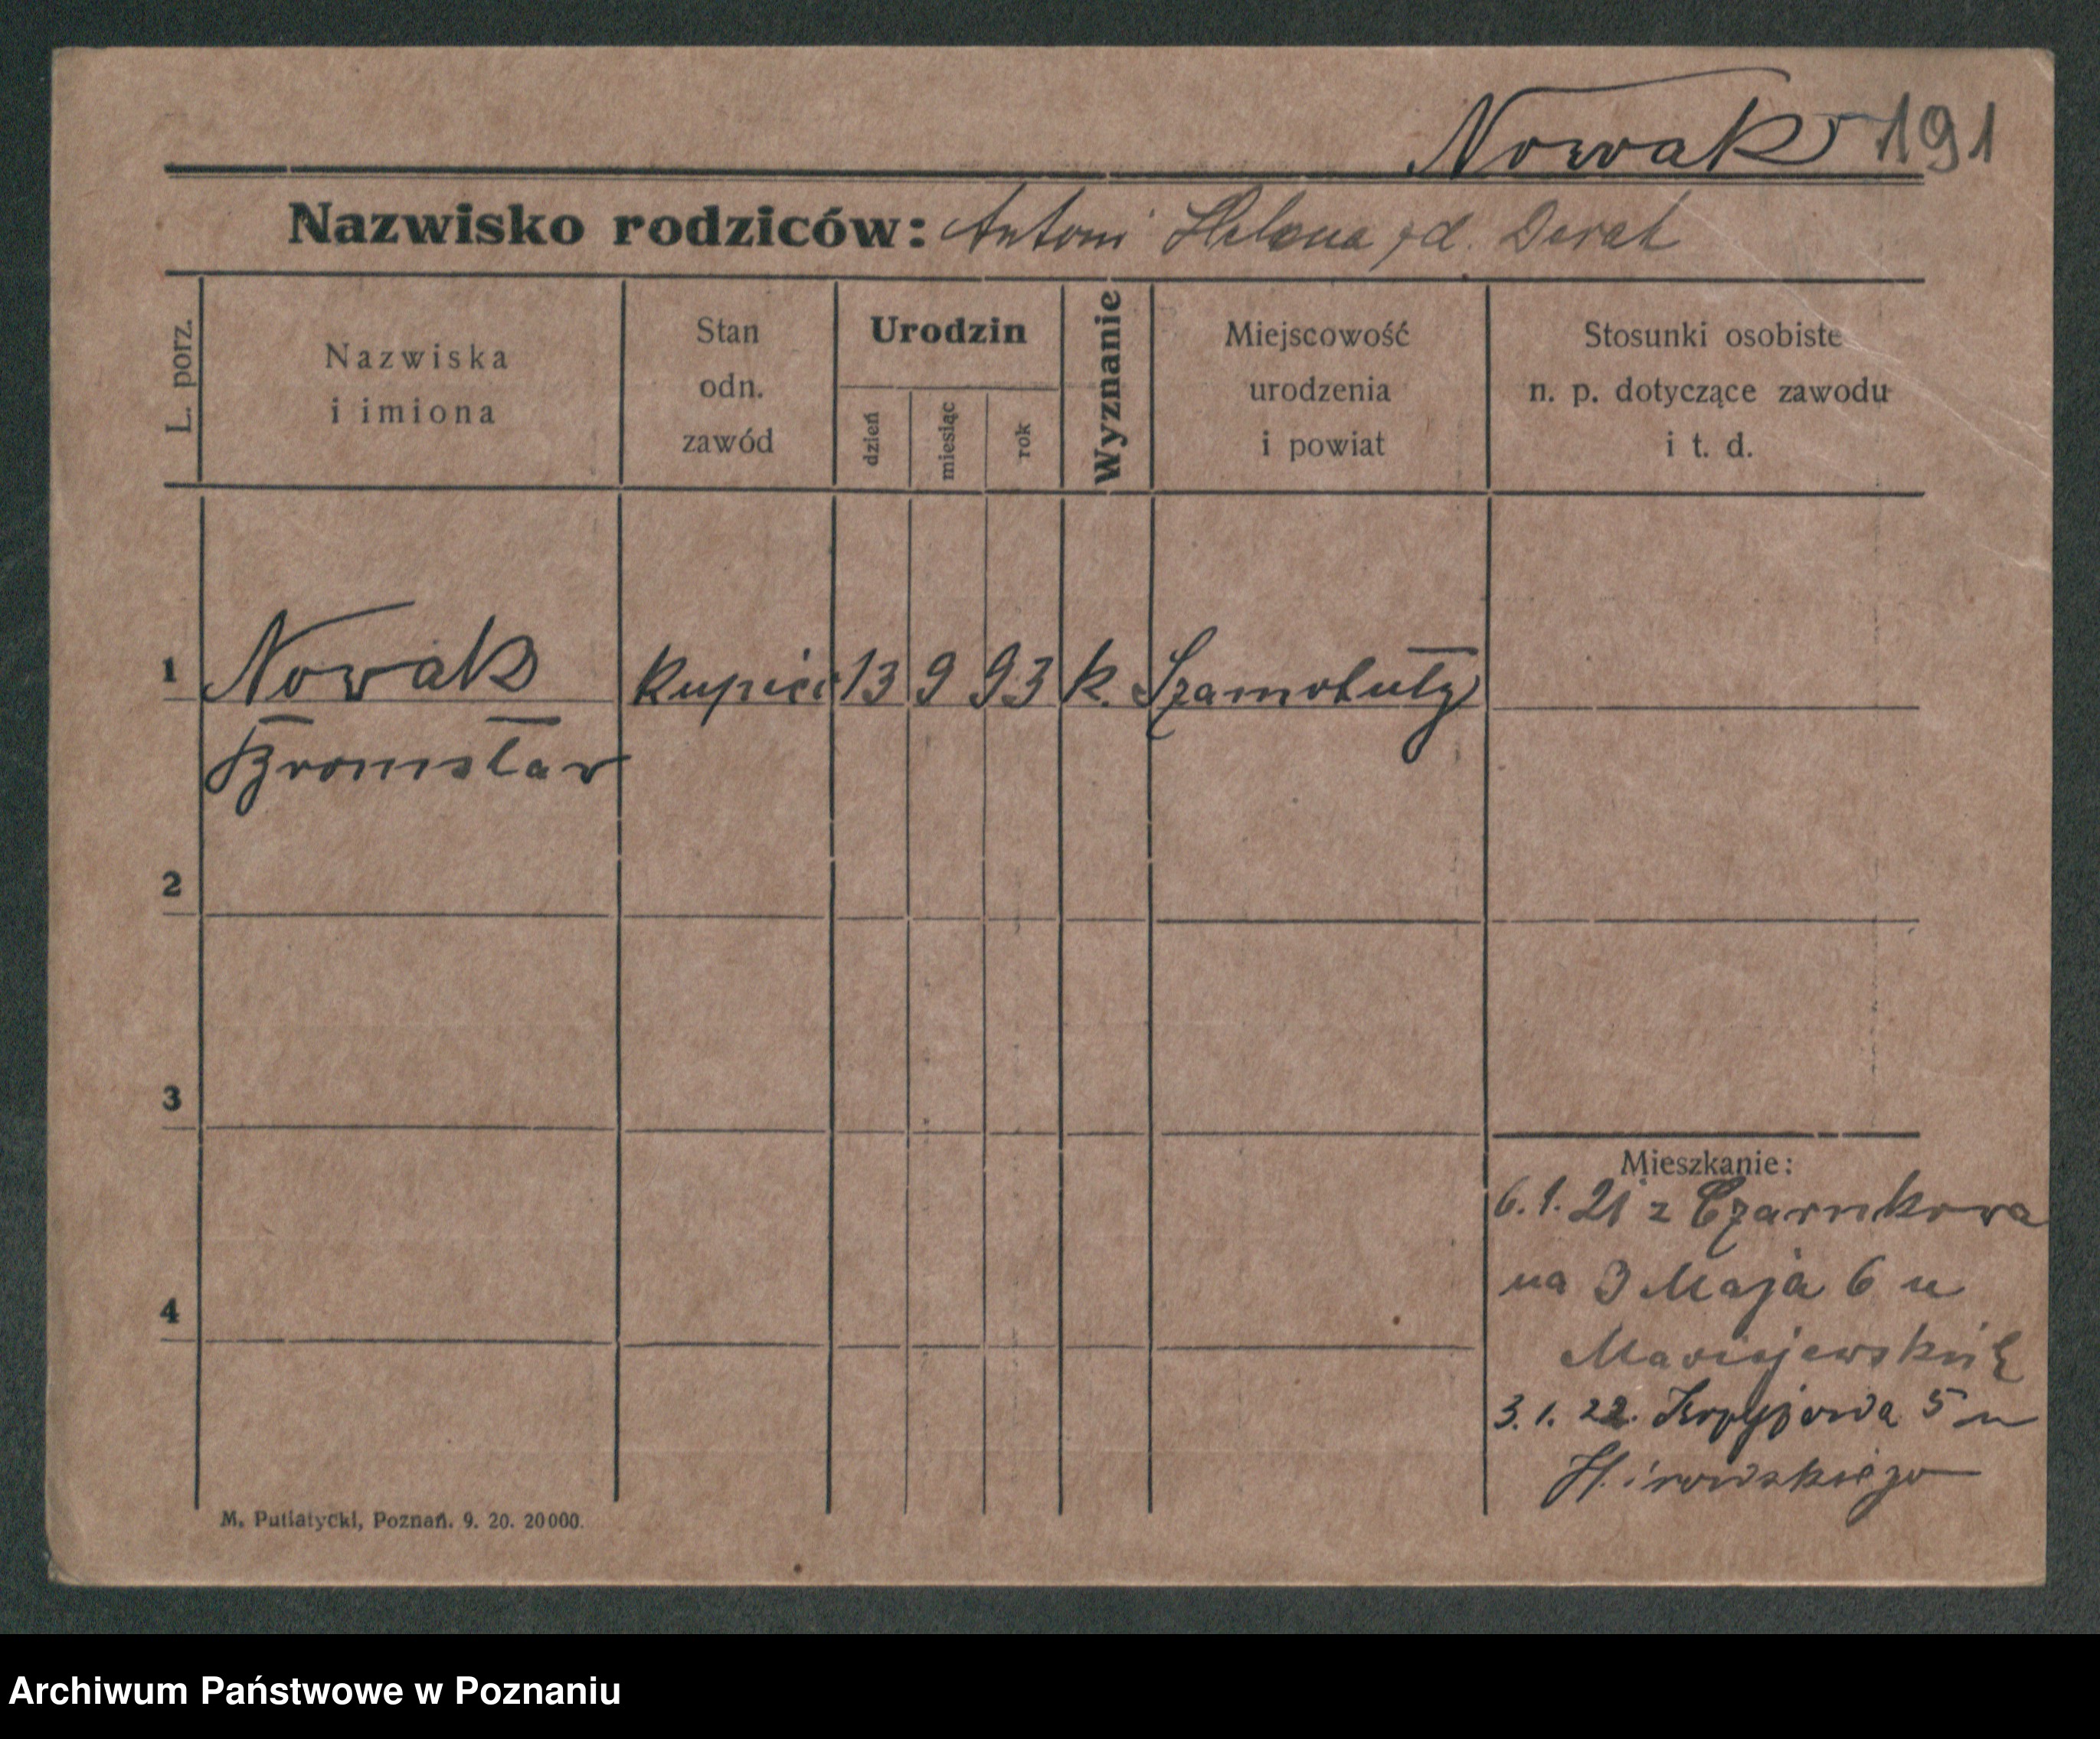 Nowak 191
Nazwisko rodziców: Antoni Helena
L. porz.
Nazwiska
i imiona
Stan
odn.
zawód
Urodzin
dzień
miesiąc
rok
Wyznanie
Miejscowość
urodzenia
i powiat
Stosunki osobiste
n. p. dotyczące zawodu
i t. d.
1 Nowak kupiec 13 9 93 k. Szamotuły
Bronisław
2
3
4
Mieszkanie:
6.1.21 z Czarnkowa
na 3 Maja 6 u
3.1.22. 5 u
M. Putiatycki, Poznań. 9. 20. 20000.
Archiwum Państwowe w Poznaniu